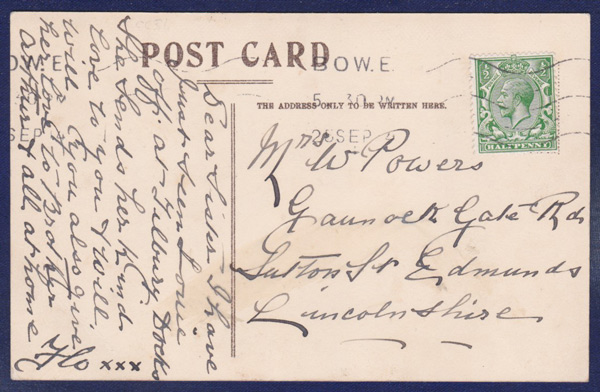 POST CARD
THE ADDRESS ONLY TO BE WRITTEN HERE.
BOW.E.
5 30 PM
25 SEP
OW.E
SEP
HALFPENNY
Dear Sister I have
Just Seen Louie
off at Tilbury Docks
She Sends her Kind
love to you & Will.
Will you also give
her love to Brother
Arthur & all at home
Flo xxx
Mrs W Powers
Gaunock Gate Rd
Sutton St Edmunds
Lincolnshire